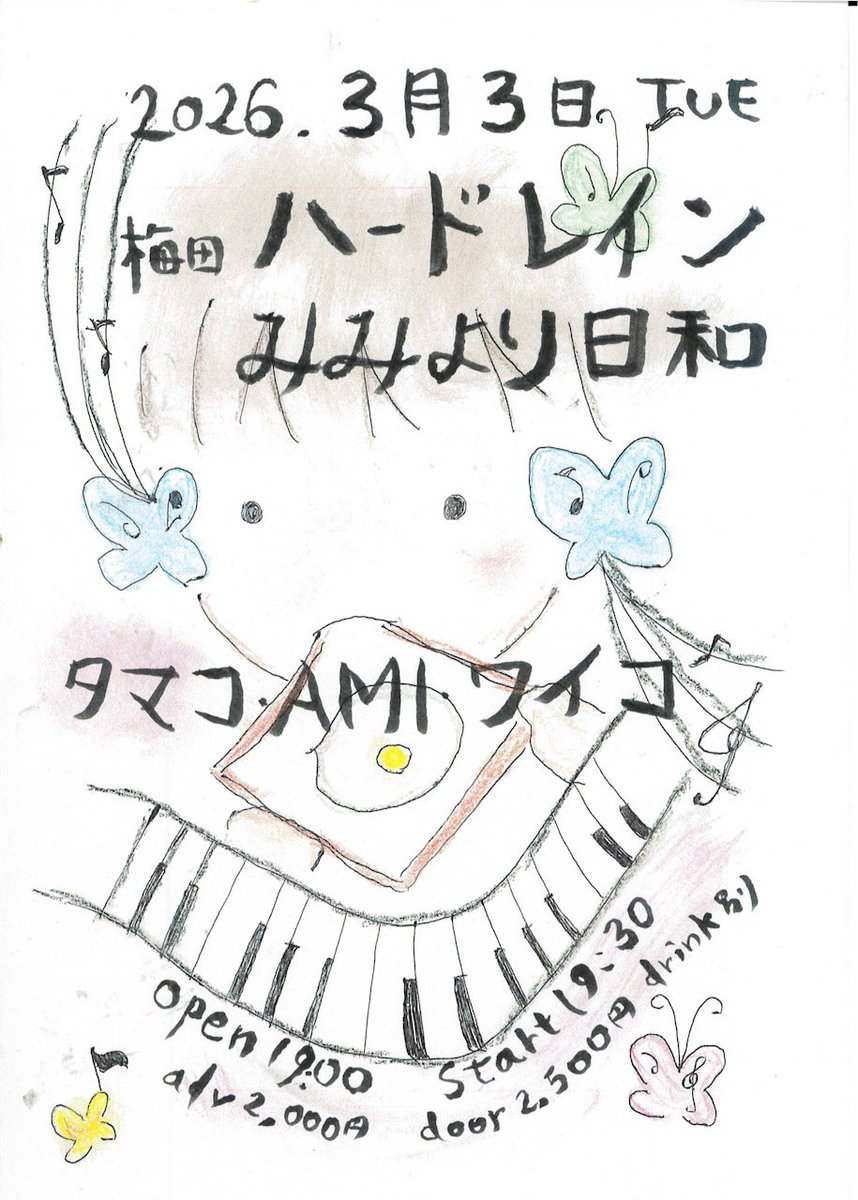 2026.3月3日 TUE
梅田 ハードレイン
みみより日和
タマコ・AMI・ワイコ
open 19:00 start 19:30
adv 2,000円 door 2,500円 drink別